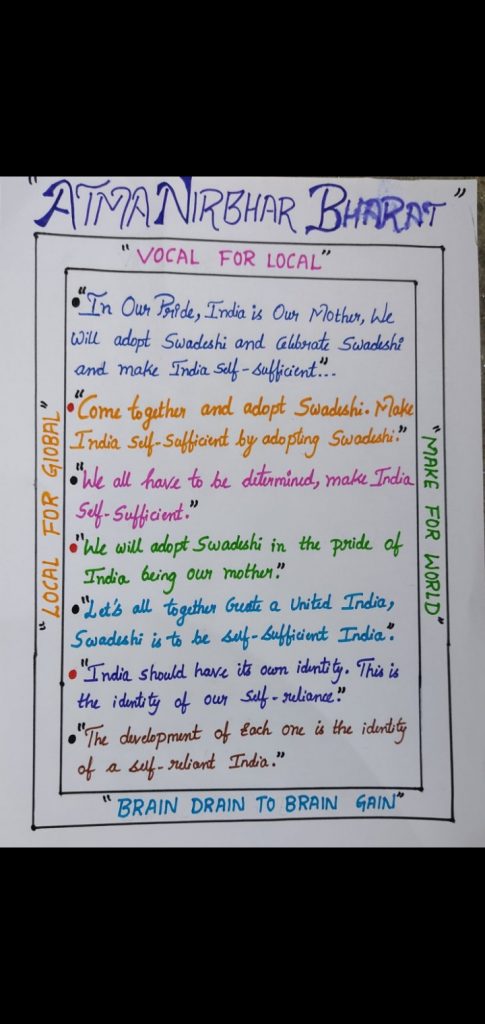 "ATMA NIRBHAR BHARAT"
"VOCAL FOR LOCAL"
"LOCAL FOR GlOBAL"
"MAKE FOR WORLD"
• "In Our Pride, India is Our Mother, We
will adopt Swadeshi and Celibrate Swadeshi
and make India Self-sufficient"...
• "Come together and adopt Swadeshi. Make
India Self-Sufficient by adopting Swadeshi."
• "We all have to be determined, make India
Self-Sufficient."
• "We will adopt Swadeshi in the pride of
India being our mother."
• "Let's all together Create a United India,
Swadeshi is to be self-sufficient India".
• "India should have its own identity. This is
the identity of our Self-reliance."
• "The development of Each one is the identity
of a self-reliant India."
"BRAIN DRAIN TO BRAIN GAIN"